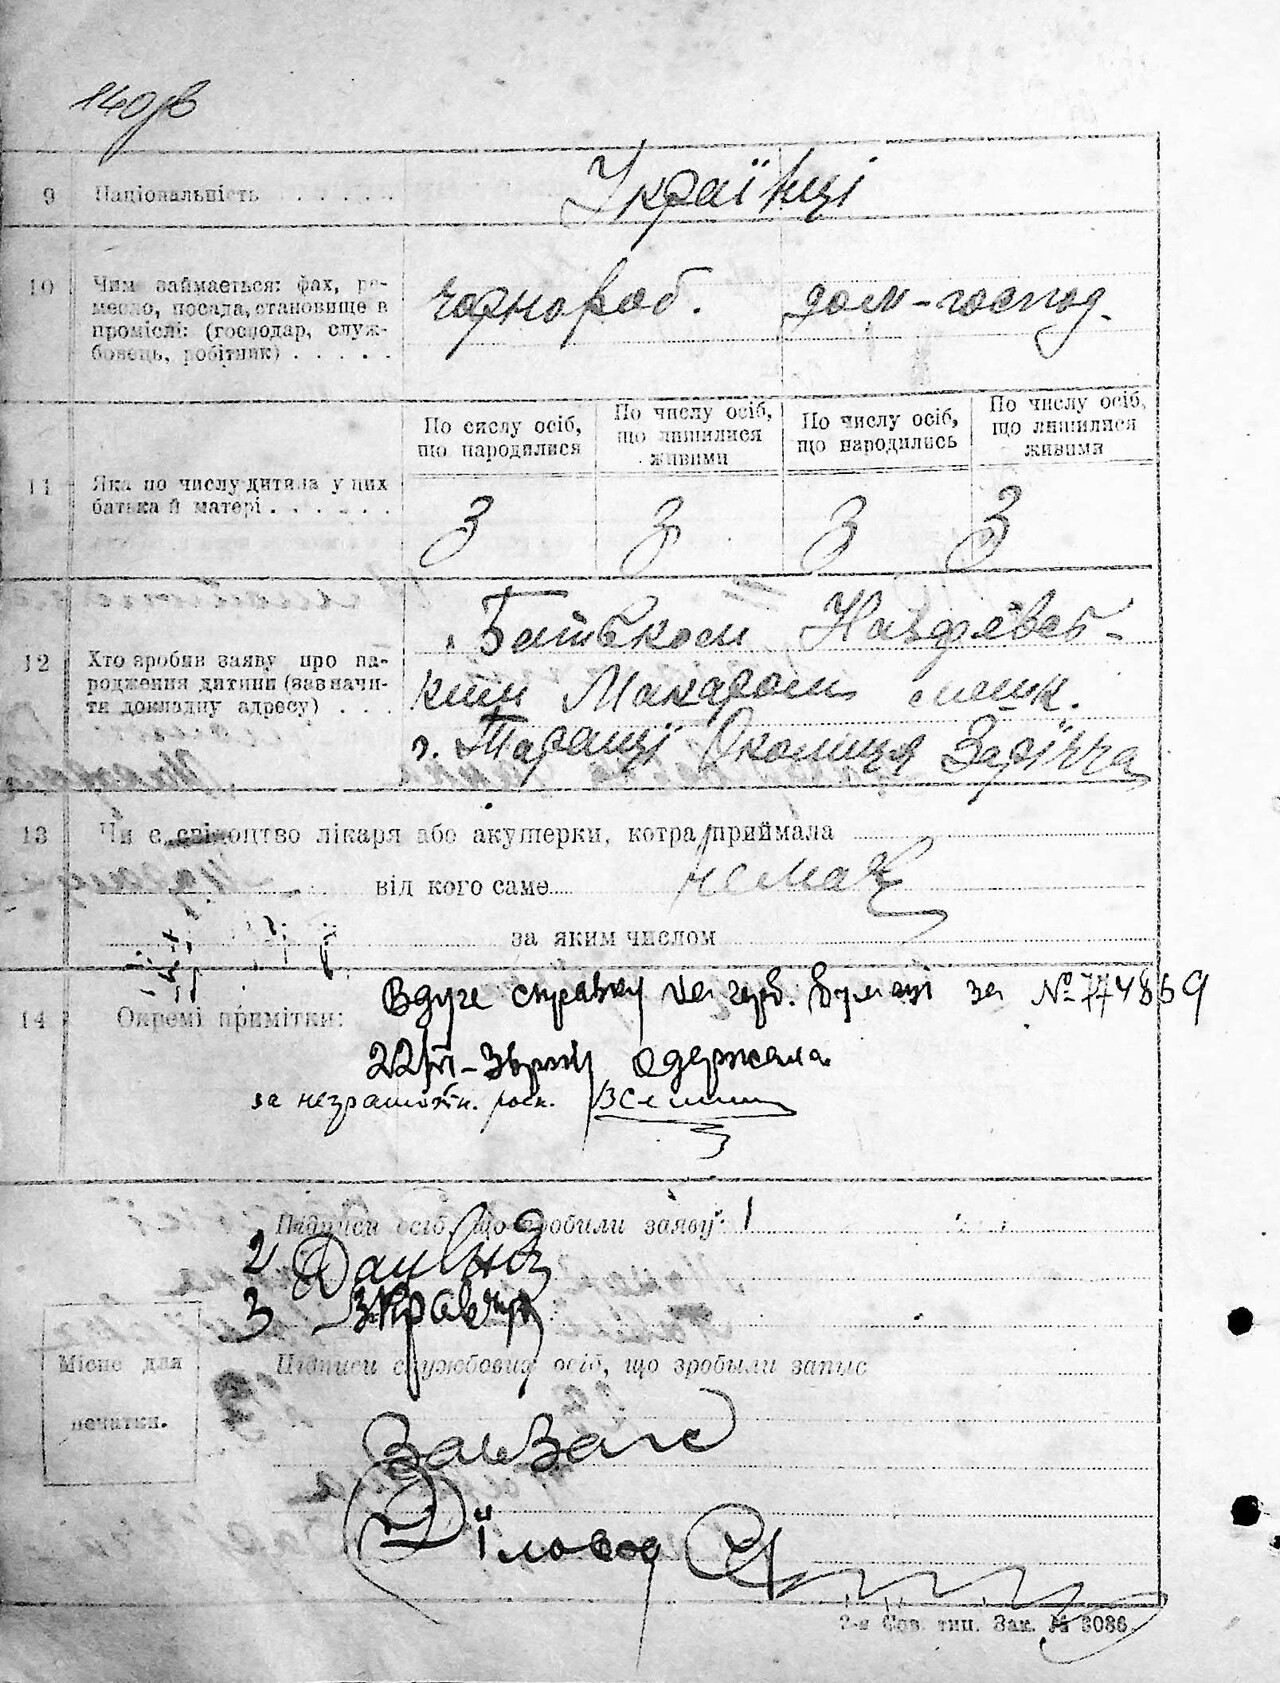 140зв
9 Національність Українці
10 Чим займається: фах, ре-
месло, посада, становище в
промислі: (господар, служ-
бовець, робітник)
чорнороб. дом-господ.
По числу осіб, що народилися
По числу осіб, що лишилися живими
По числу осіб, що народились
По числу осіб, що лишилися живими
11 Яка по числу дитина у цих
батька й матері
3 3 3 3
12 Хто зробив заяву про на-
родження дитини (зазначи-
ти докладну адресу)
Батьком
ким Макаром мешк.
г. Таращі Околиця Зарічча
13 Чи є свідоцтво лікаря або акушерки, котра приймала
від кого саме немає
за яким числом
14 Окремі примітки:
Вдруге справку на герб. бумазі за № 774859
22/VI одержала
за незрамотн. росп.
Підписи осіб, що зробили заяву: 1
2
3 Зкравчук
Підписи службових осіб, що зробыли запис
Місце для
печатки.
ЗавЗагс
Діловод
2-а Сов. тип. Зак. № 3086.